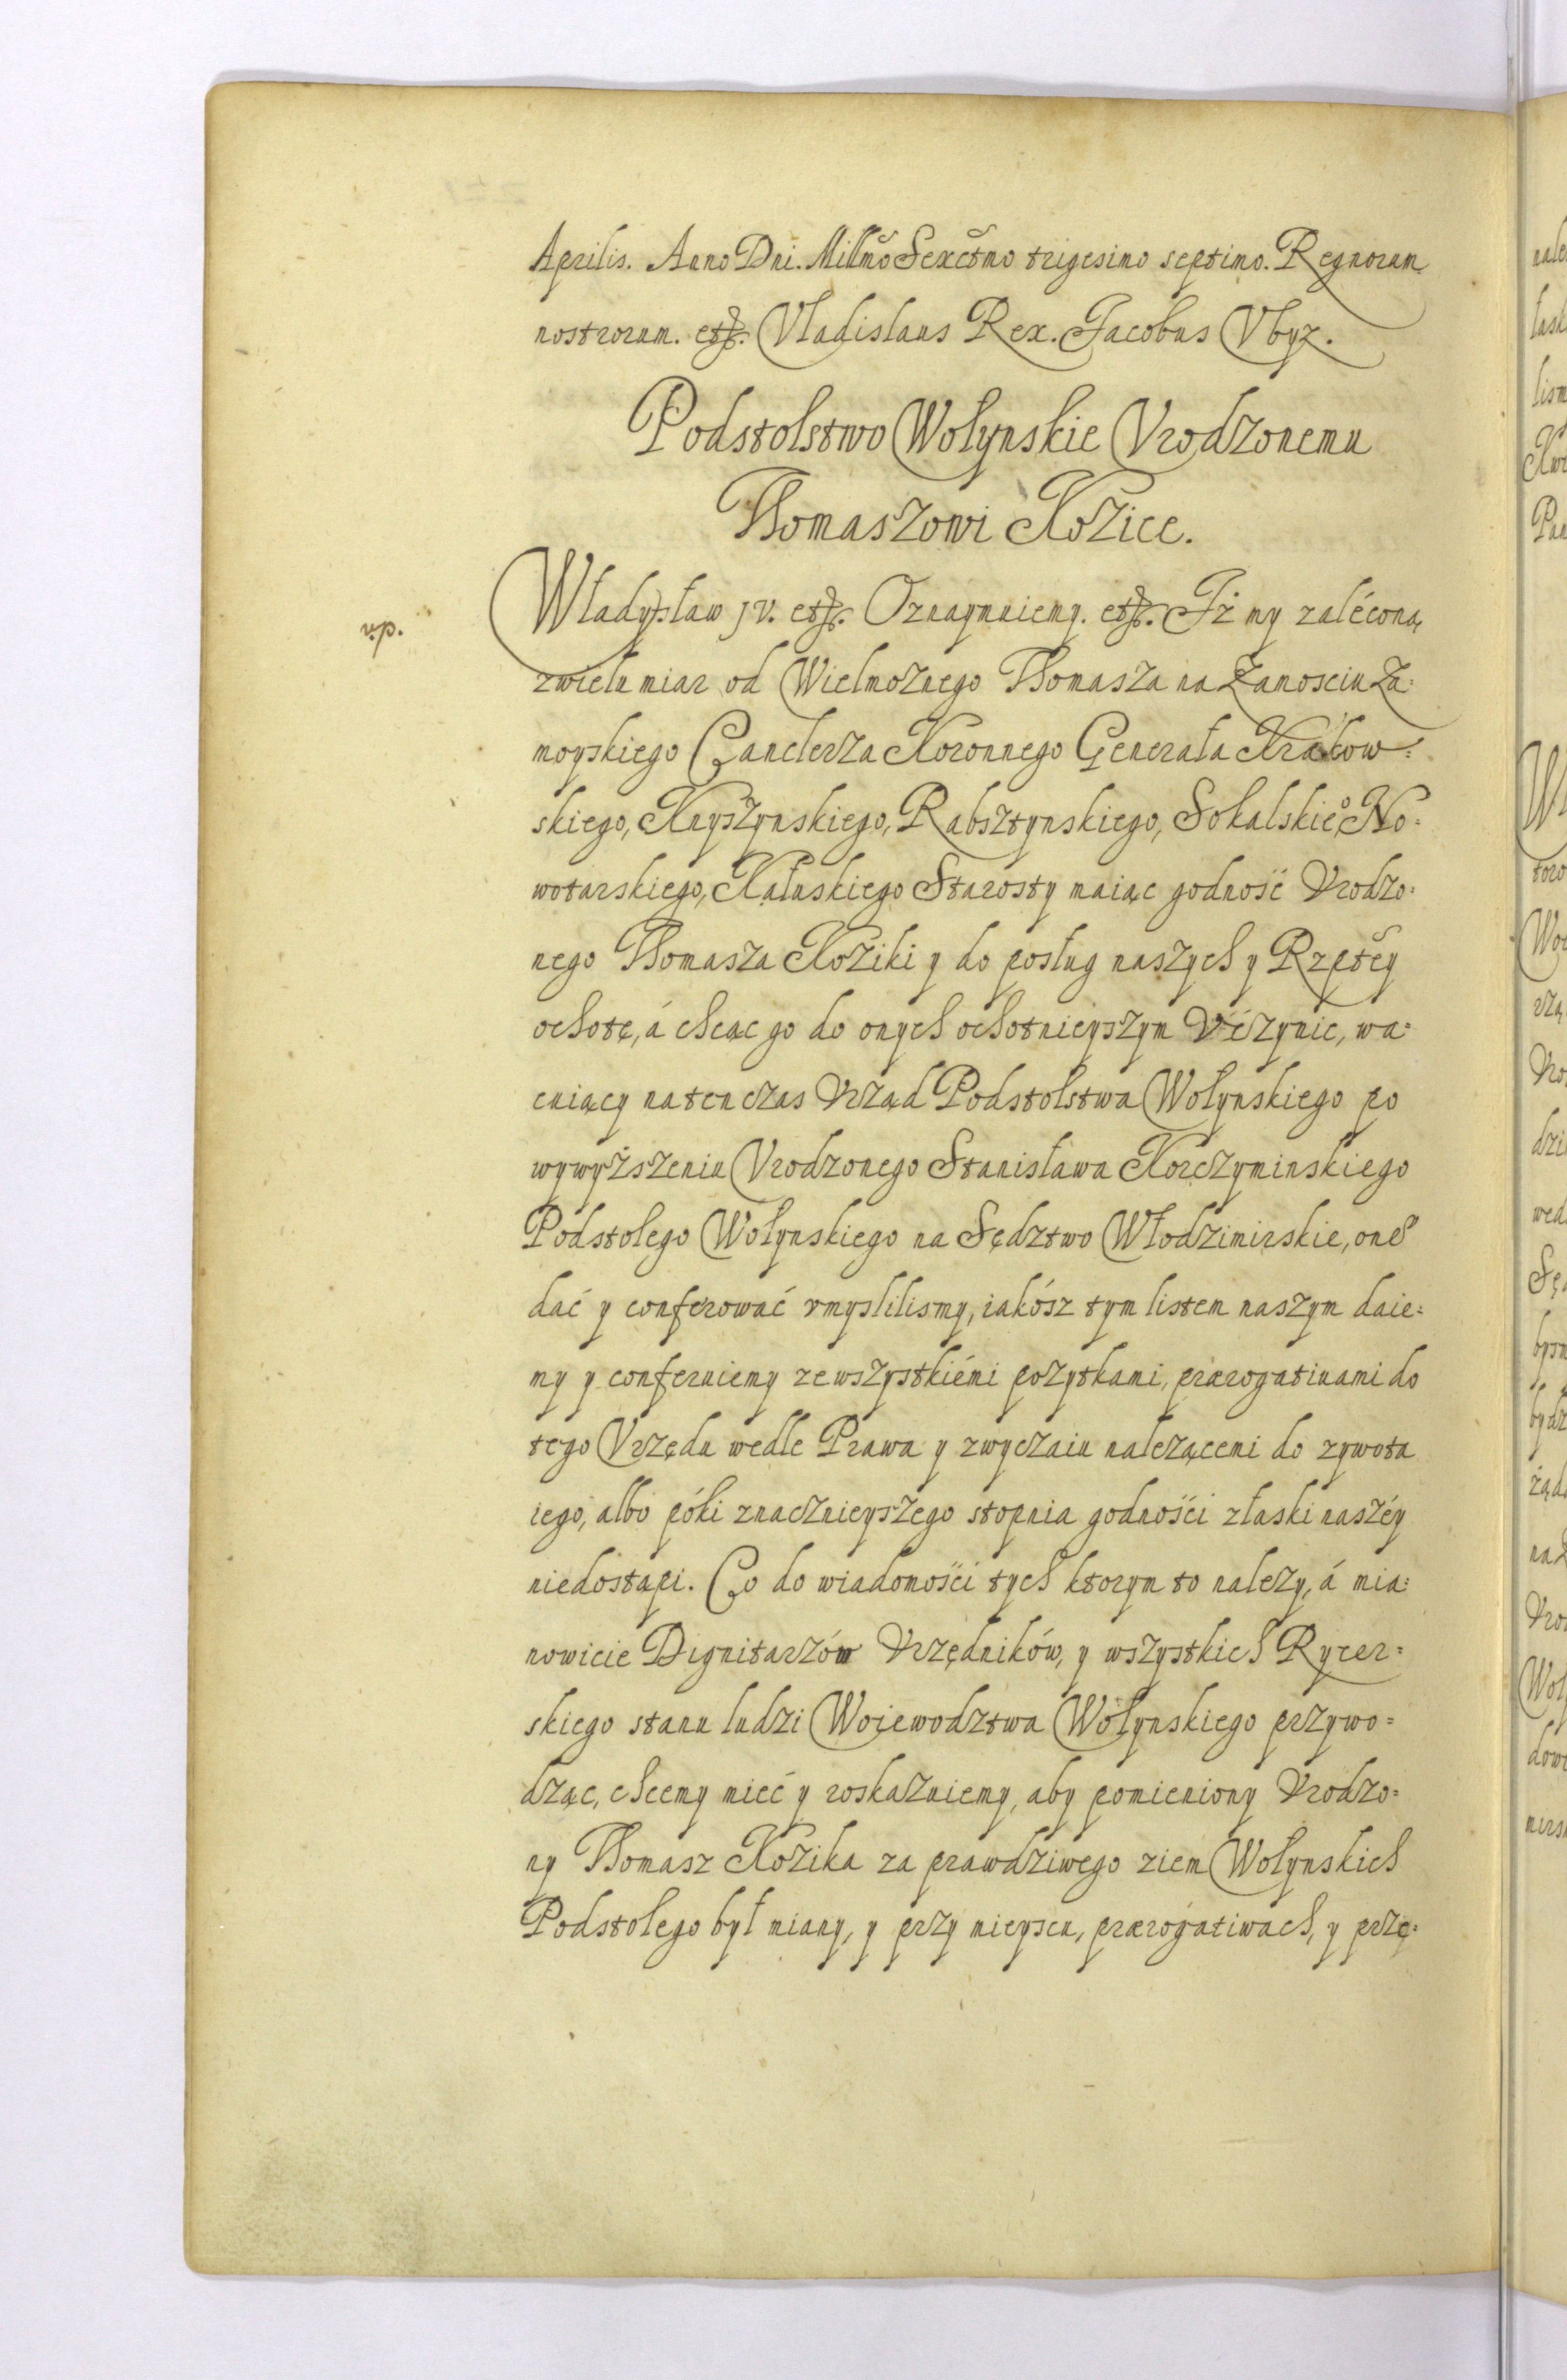 Aprilis. Anno Dni. Millmo Sexctmo trigesimo septimo. Regnorum
nostrorum. etc. Vladislaus Rex. Jacobus Vbyz.
Podstolstwo Wołynskie Vrodzonemu
Thomaszowi Kozice.
Władysław jv. etc. Oznaymuiemy. etc. Iż my zalécona
zwielu miar od Wielmoznego Thomasza na Zamosciu Za=
moyskiego Canclerza Koronnego Generała Krakow=
skiego, Knyszynskiego, Rabsztynskiego, Sokalskieo, No=
wotarskiego, Kałuskiego Starosty maiąc godność Vrodzo=
nego Thomasza Koziki y do posług naszych y Rzptey
ochotę, á chcąc go do onych ochotnieyszym Vczynic, wa=
cuiący natenczas Vrząd Podstolstwa Wołynskiego po
wywyższeniu Vrodzonego Stanisława Korczyminskiego
Podstolego Wołynskiego na Sędztwo Włodzimirskie, one
dać y conferować vmyslilismy, iakósz tym listem naszym daie=
my y conferuiemy zewszystkiémi pozytkami, prærogatiuami do
tego Vrzędu wedle Prawa y zwyczaiu nalezącemi do zywota
iego, albo póki znacznieyszego stopnia godności złaski naszéy
niedostąpi. Co do wiadomości tych ktorym to nalezy, á mia=
nowicie Dignitarzów Vrzędników, y wszystkich Rycer=
skiego stanu ludzi Woiewodztwa Wołynskiego przywo=
dząc, chcemy mieć y roskazuiemy, aby pomieniony Vrodzo=
ny Thomasz Kozika za prawdziwego ziem Wołynskich
Podstolego był miany, y przy mieyscu, prærogatiwach, y prze=